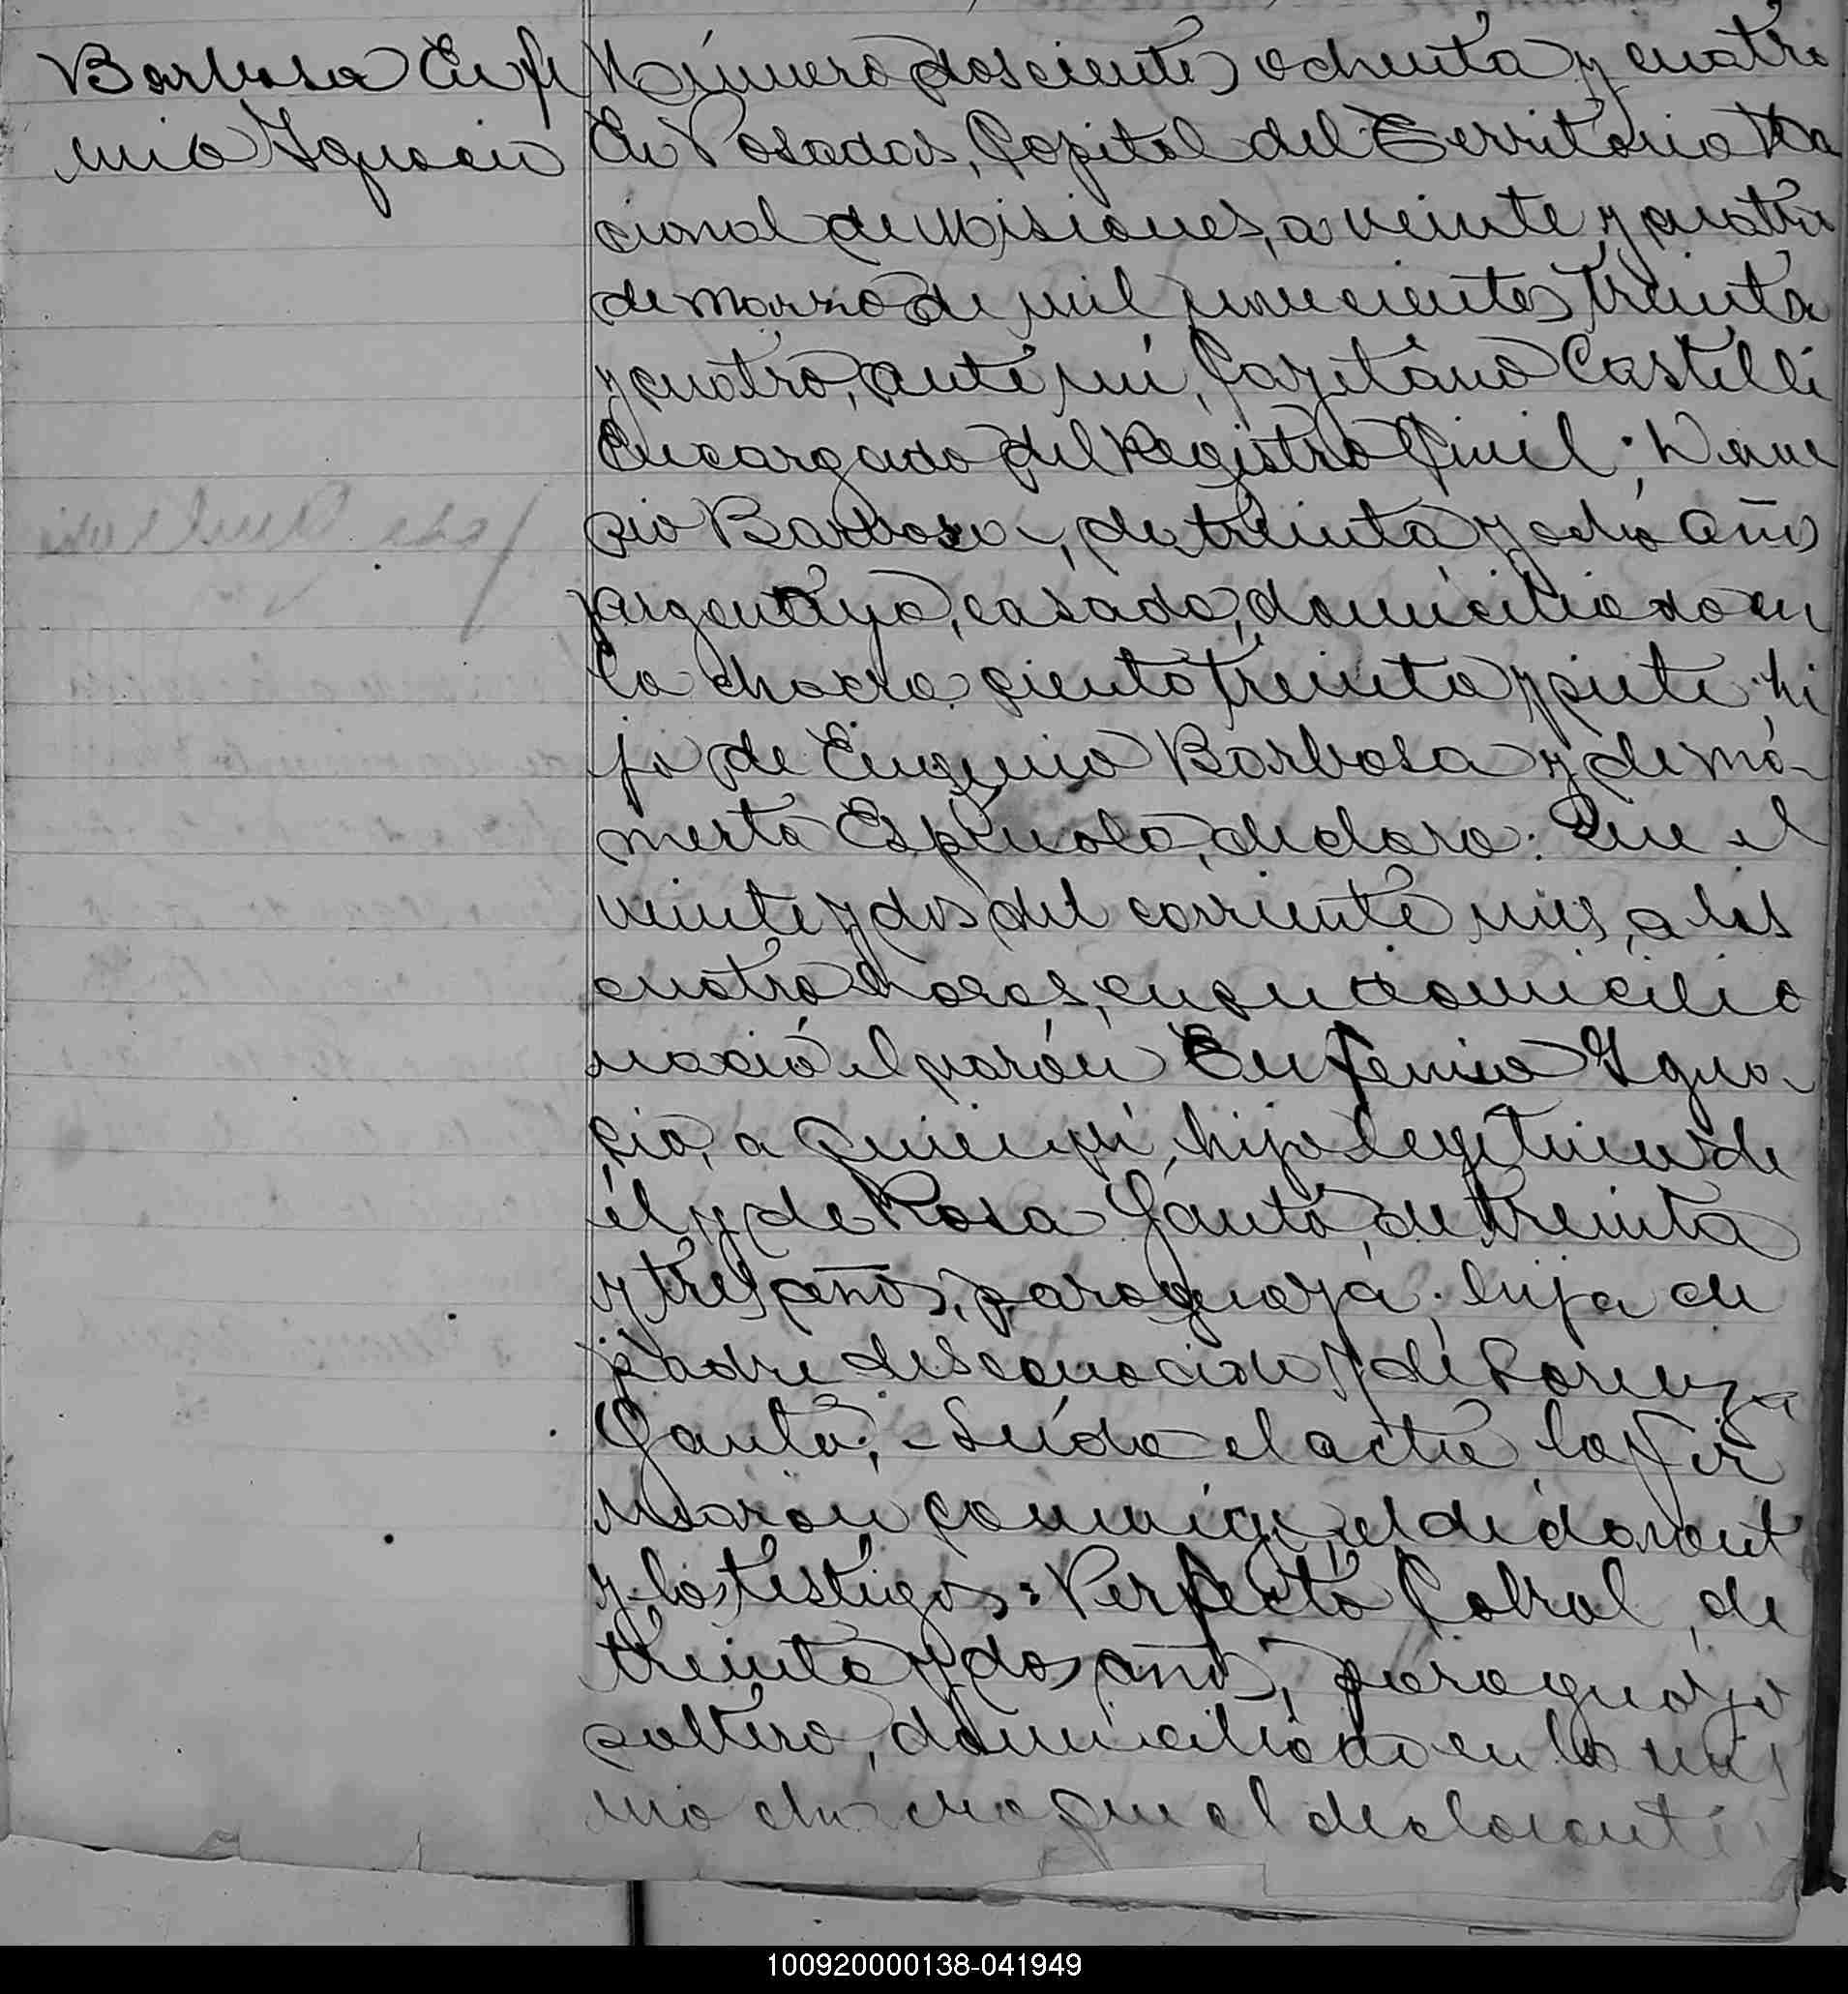 Barbosa Eufe
mio Ignacio
Número doscientos ochenta y cuatro
En Posadas, Capital del Territorio Na
cional de Misiones, a veinte y cuatro
de marzo de mil novecientos treinta
y cuatro, ante mí, Cayetano Castelli
Encargado del Registro Civil;
cio Barbosa, de treinta y ocho años
argentino, casado, domiciliado en
la chacra ciento treinta y siete, hi
jo de Eugenio Barbosa y de Ma-
merta Espinola, declara: Que el
veinte y dos del corriente mes, a las
cuatro horas, en su domicilio
nació el varón Eufemio Igna-
cio, a quien vi, hijo legítimo de
él y de Rosa Gauto, de treinta
y tres años, paraguaya, hija de
padre desconocido y de Lorenza
Gauto. Leída el acta, la fir
maron conmigo, el declarant
y los testigos: Perfecto Cabral, de
treinta y dos años, paraguayo
soltero, domiciliado en la mis
ma chacra que el declarante
100920000138-041949